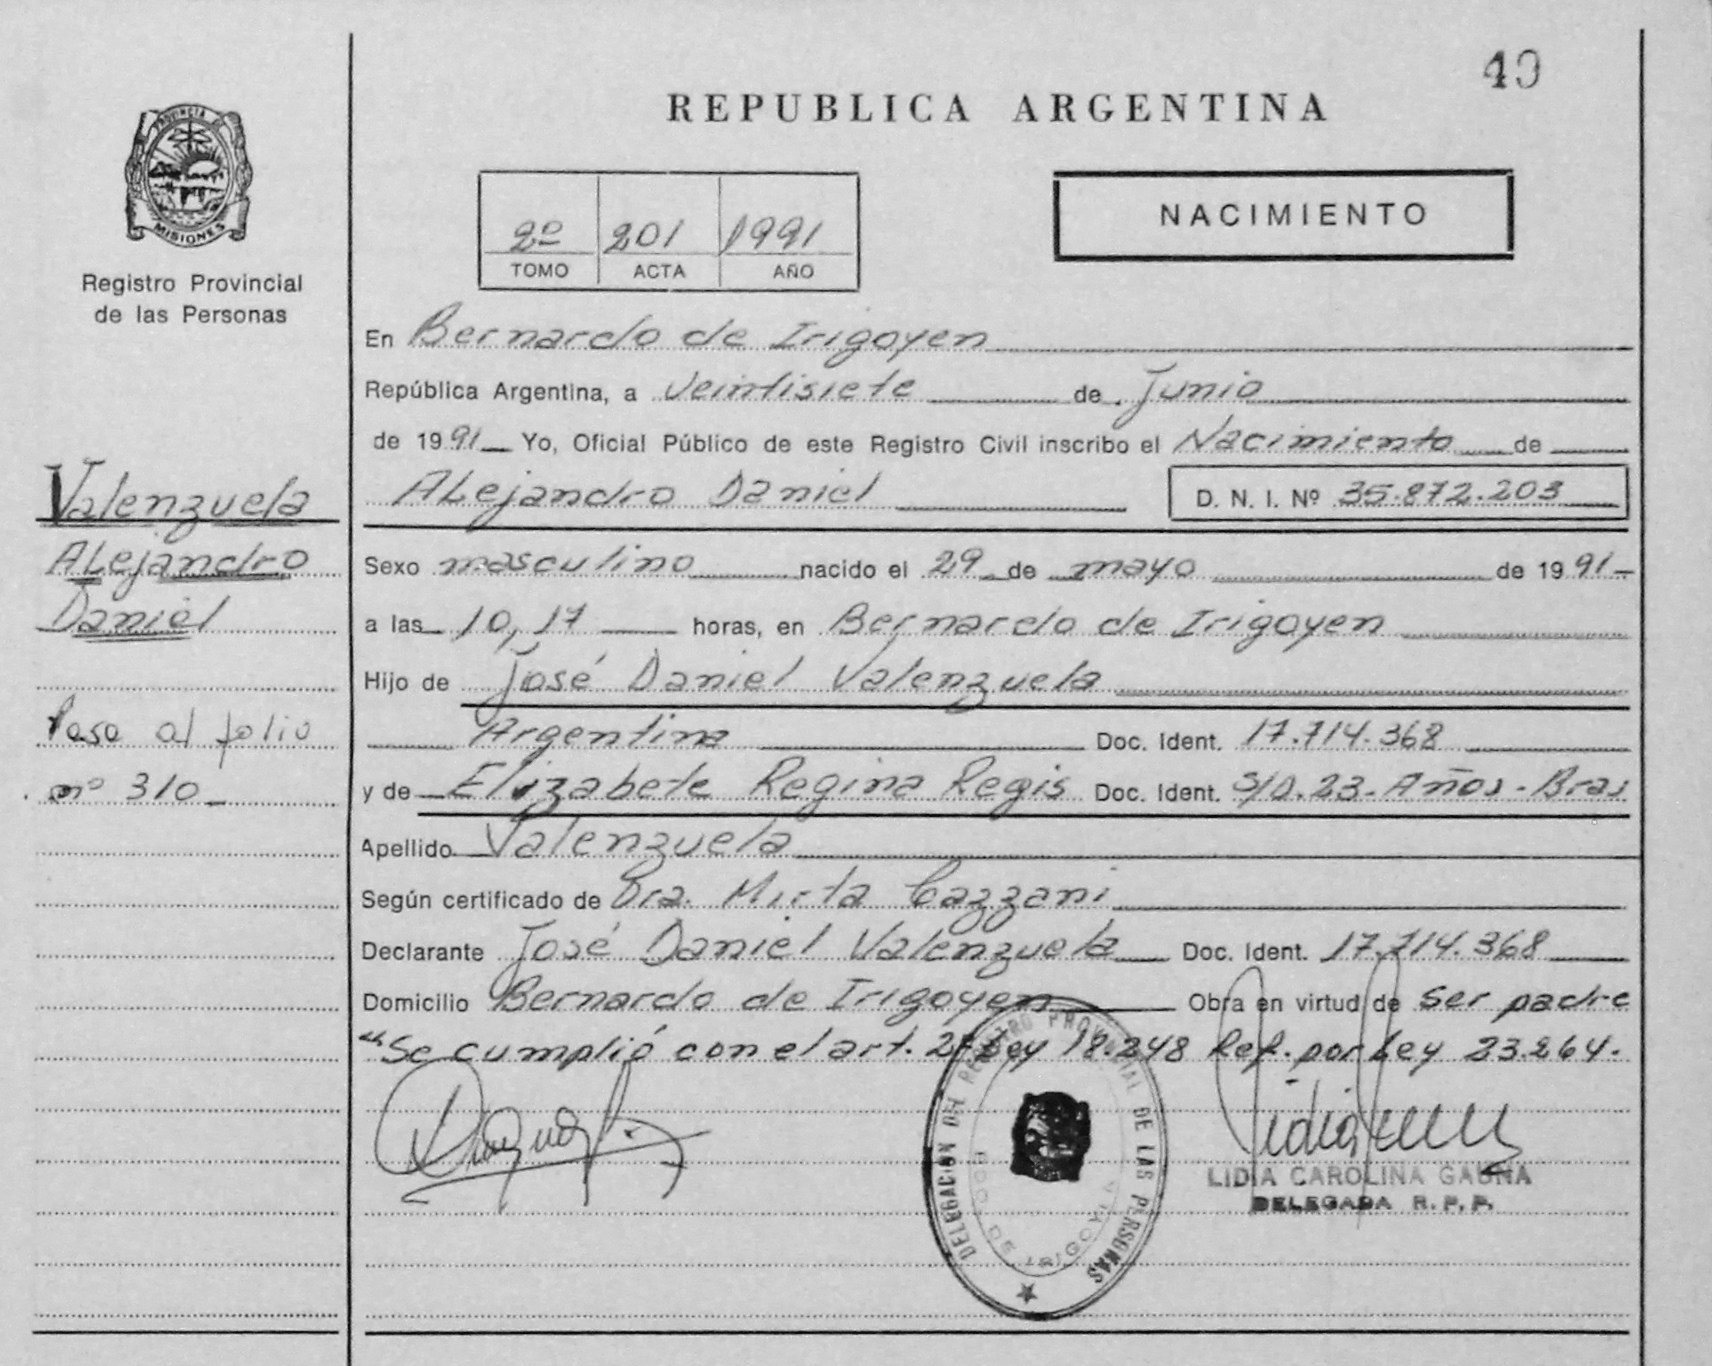 40
REPUBLICA ARGENTINA
PROVINCIA DE
MISIONES
Registro Provincial
de las Personas
2º 201 1991
TOMO ACTA AÑO
NACIMIENTO
En Bernardo de Irigoyen
República Argentina, a veintisiete de Junio
de 1991 Yo, Oficial Público de este Registro Civil inscribo el Nacimiento de
Alejandro Daniel D. N. I. Nº 35.872.203
Valenzuela
Alejandro
Daniel
Sexo masculino nacido el 29 de mayo de 1991-
a las 10,17 horas, en Bernardo de Irigoyen
Hijo de José Daniel Valenzuela
Argentina Doc. Ident. 17.714.368
Pasa al folio
nº 310-
y de Elizabete Regina Regis Doc. Ident. S/D.23-Años-Bras
Apellido Valenzuela
Según certificado de Dra. Mirta Cazzani
Declarante José Daniel Valenzuela Doc. Ident. 17.714.368
Domicilio Bernardo de Irigoyen Obra en virtud de ser padre
"Se cumplió con el art. 2º Ley 18.248 Ref. por Ley 23.264.
DELEGACION DEL REGISTRO PROVINCIAL DE LAS PERSONAS
LIDIA CAROLINA GAUNA
DELEGADA R. P. P.